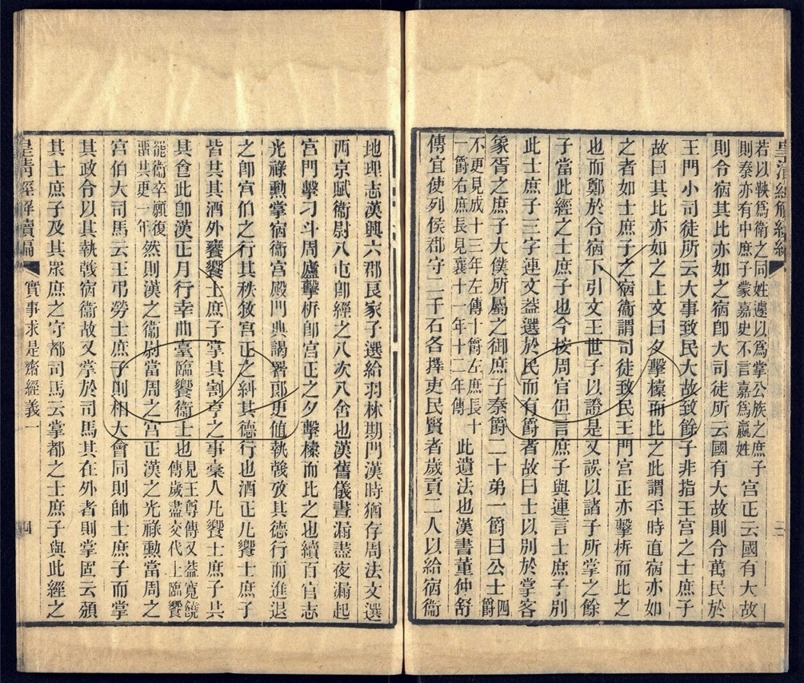 皇清經解續編
若以鞅爲衞之同姓遽以爲掌公族之庶子
則秦亦有中庶子蒙嘉史不言嘉爲嬴姓
宮正云國有大故
則令宿其比亦如之宿卽大司徒所云國有大故則令萬民於
王門小司徒所云大事致民大故致餘子非指王宮之士庶子
故曰其比亦如之上文曰夕擊柝而比之此謂平時直宿亦如
之者如士庶子之宿衞謂司徒致民王門宮正亦擊柝而比之
也而鄭於令宿下引文王世子以證是又誤以諸子所掌之餘
子當此經之士庶子也今按周官但言庶子與連言士庶子別
此士庶子三字連文葢選於民而有爵者故曰士以別於掌客
象胥之庶子大僕所屬之御庶子秦爵二十弟一爵曰公士
四爵
不更見成十三年左傳十爵左庶長十
一爵右庶長見襄十一年十二年傳
此遺法也漢書董仲舒
傳宜使列侯郡守二千石各擇吏民賢者歲貢二人以給宿衞
地理志漢興六郡良家子選給羽林期門漢時猶存周法文選
西京賦衞尉八屯卽經之八次八舍也漢舊儀晝漏盡夜漏起
宮門擊刁斗周廬擊柝卽宮正之夕擊柝而比之也續百官志
光祿勲掌宿衞宮殿門典謁署郎更値執戟攷其德行而進退
之卽宮伯之行其秩敘宮正之糾其德行也酒正凡饗士庶子
皆共其酒外饔饗士庶子掌其割亨之事槀人凡饗士庶子共
其食此卽漢正月行幸曲臺臨饗衞士也
見王尊傳又葢寬饒
傳歲盡交代上臨饗
罷衞卒願復
畱共更一年
然則漢之衞尉當周之宮正漢之光祿勲當周之
宮伯大司馬云王弔勞士庶子則相大會同則帥士庶子而掌
其政令以其執戟宿衞故又掌於司馬其在外者則掌固云頒
其士庶子及其眾庶之守都司馬云掌都之士庶子與此經之
皇清經解續編
實事求是齋經義一
四